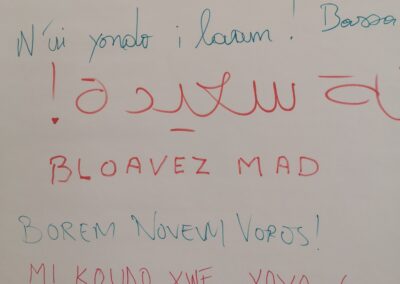 N'ui yondo i laram! Bassa
ة سعيدة!
BLOAVEZ MAD
BOREM NOVEM VOROS!
MI KOUDO XWE YOYO